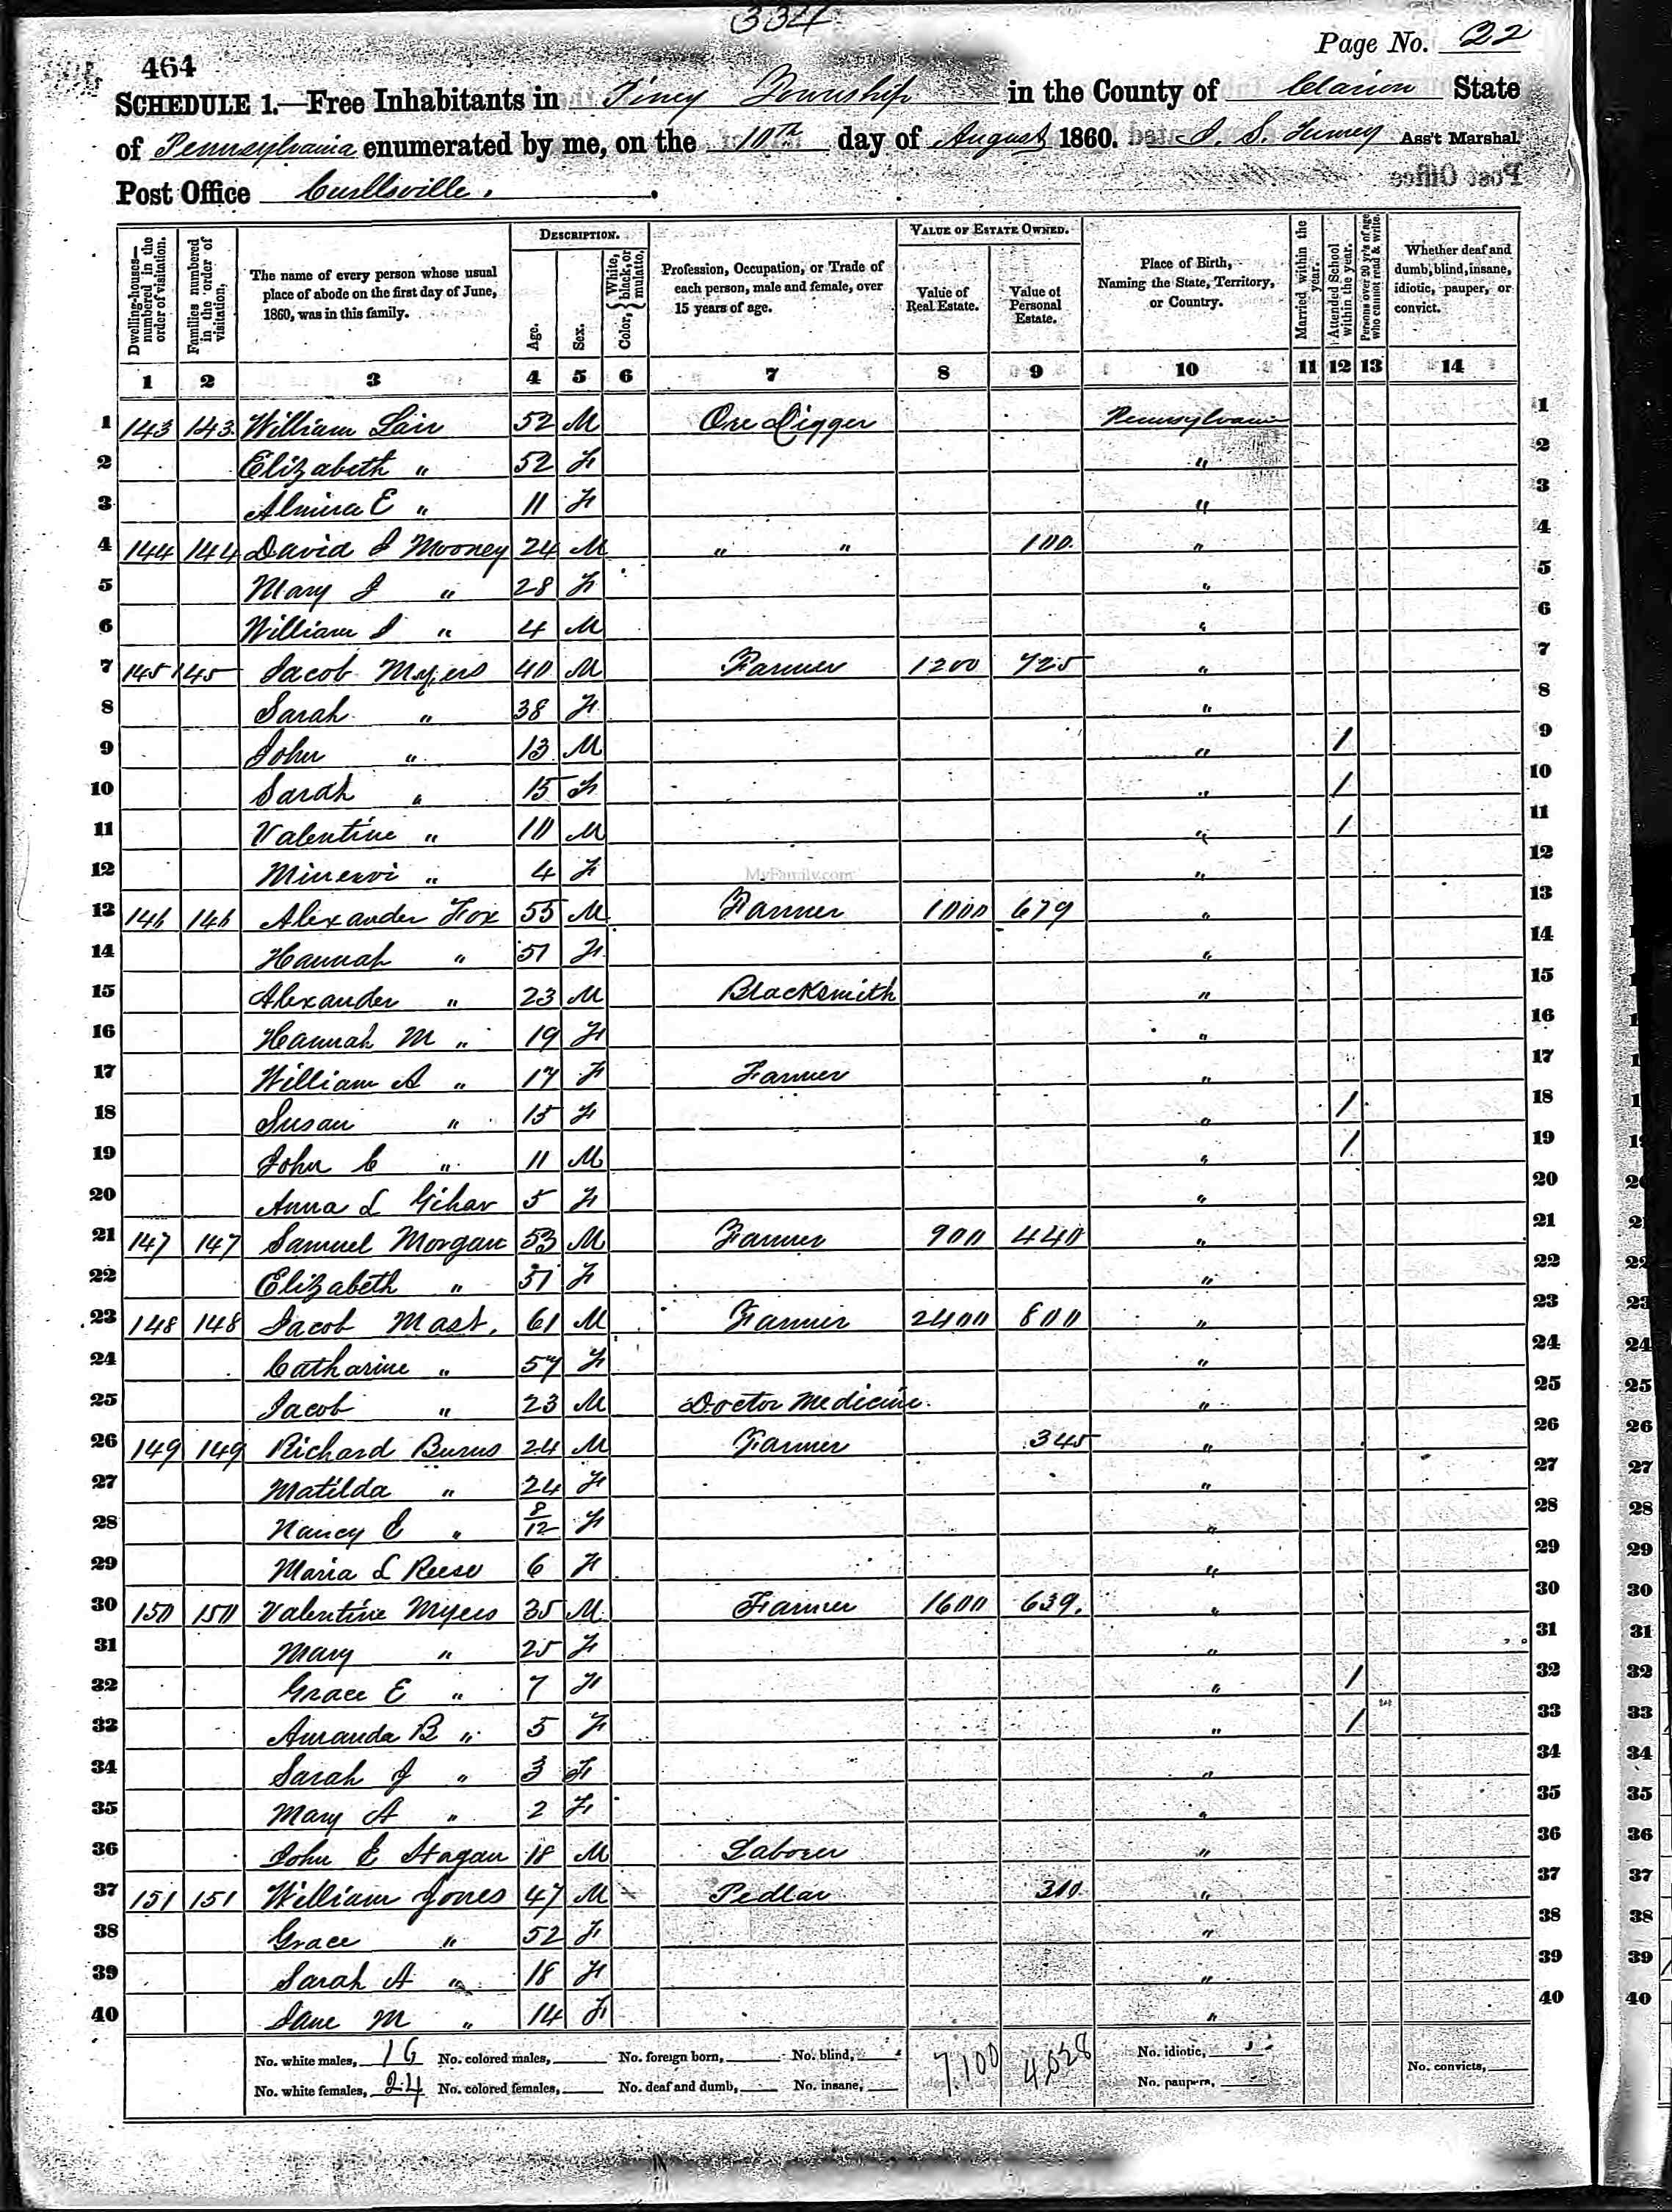 334
Page No. 22
464
SCHEDULE 1.—Free Inhabitants in Piney Township in the County of Clarion State
of Pennsylvania enumerated by me, on the 10th day of August 1860. Ass't Marshal.
Post Office Curllsville.
Post Office
Dwelling-houses—numbered in the order of visitation.
Families numbered in the order of visitation,
The name of every person whose usual place of abode on the first day of June, 1860, was in this family.
DESCRIPTION.
Age.
Sex.
Color, White, black, or mulatto,
Profession, Occupation, or Trade of each person, male and female, over 15 years of age.
VALUE OF ESTATE OWNED.
Value of Real Estate.
Value of Personal Estate.
Place of Birth, Naming the State, Territory, or Country.
Married within the year.
Attended School within the year.
Persons over 20 yr's of age who cannot read & write.
Whether deaf and dumb, blind, insane, idiotic, pauper, or convict.
1 2 3 4 5 6 7 8 9 10 11 12 13 14
1 143 143 William Lair 52 M Ore Digger Pennsylvania 1
2 Elizabeth " 52 F " 2
3 Almira E " 11 F " 3
4 144 144 David J Mooney 24 M " " 100. " 4
5 Mary J " 28 F " 5
6 William J " 4 M " 6
7 145 145 Jacob Myers 40 M Farmer 1200 725 " 7
8 Sarah " 38 F " 8
9 John " 13 M " / 9
10 Sarah " 15 F " / 10
11 Valentine " 10 M " / 11
12 Minervi " 4 F " 12
MyFamily.com
13 146 146 Alexander Fox 55 M Farmer 1000 679 " 13
14 Hannah " 51 F " 14
15 Alexander " 23 M Blacksmith " 15
16 Hannah M " 19 F " 16
17 William A " 17 F Farmer " 17
18 Susan " 15 F " / 18
19 John C " 11 M " / 19
20 Anna L 5 F " 20
21 147 147 Samuel Morgan 53 M Farmer 900 440 " 21
22 Elizabeth " 51 F " 22
23 148 148 Jacob Mast. 61 M Farmer 2400 800 " 23
24 Catharine " 57 F " 24
25 Jacob " 23 M Doctor Medicine. " 25
26 149 149 Richard Burns 24 M Farmer 345 " 26
27 Matilda " 24 F " 27
28 Nancy C " 8/12 F " 28
29 Maria L Reese 6 F " 29
30 150 150 Valentine Myers 35 M Farmer 1600 639. " 30
31 Mary " 25 F " 31
32 Grace E " 7 F " / 32
33 Amanda B " 5 F " / 33
34 Sarah J " 3 F " 34
35 Mary A " 2 F " 35
36 John E Hagan 18 M Laborer " 36
37 151 151 William Jones 47 M Pedlar 300. " 37
38 Grace " 52 F " 38
39 Sarah A " 18 F " 39
40 Jane M " 14 F " 40
No. white males, 16 No. colored males, No. foreign born, No. blind, 7,100 4,028 No. idiotic, No. convicts,
No. white females, 24 No. colored females, No. deaf and dumb, No. insane, No. paupers,